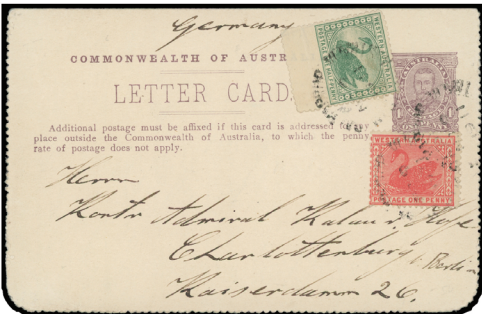 Germany
COMMONWEALTH OF AUSTR
LETTER CARD.
Additional postage must be affixed if this card is addressed
place outside the Commonwealth of Australia, to which the penny
rate of postage does not apply.
WESTERN AUSTRALIA
POSTAGE ONE PENNY
Herrn
Kontr Admiral Kalau v. Hofe
Charlottenburg b. Berlin
Kaiserdamm 26.